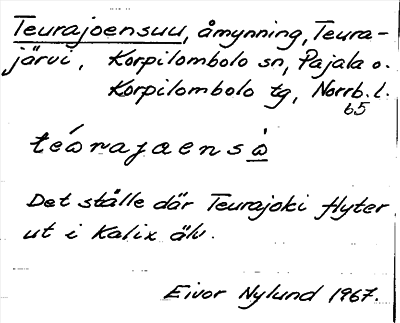 Teurajoensuu, åmynning, Teura-
järvi, Korpilombolo sn, Pajala o.
Korpilombolo tg, Norrb. l.
65
Det ställe där Teurajoki flyter
ut i Kalix älv.
Eivor Nylund 1967.